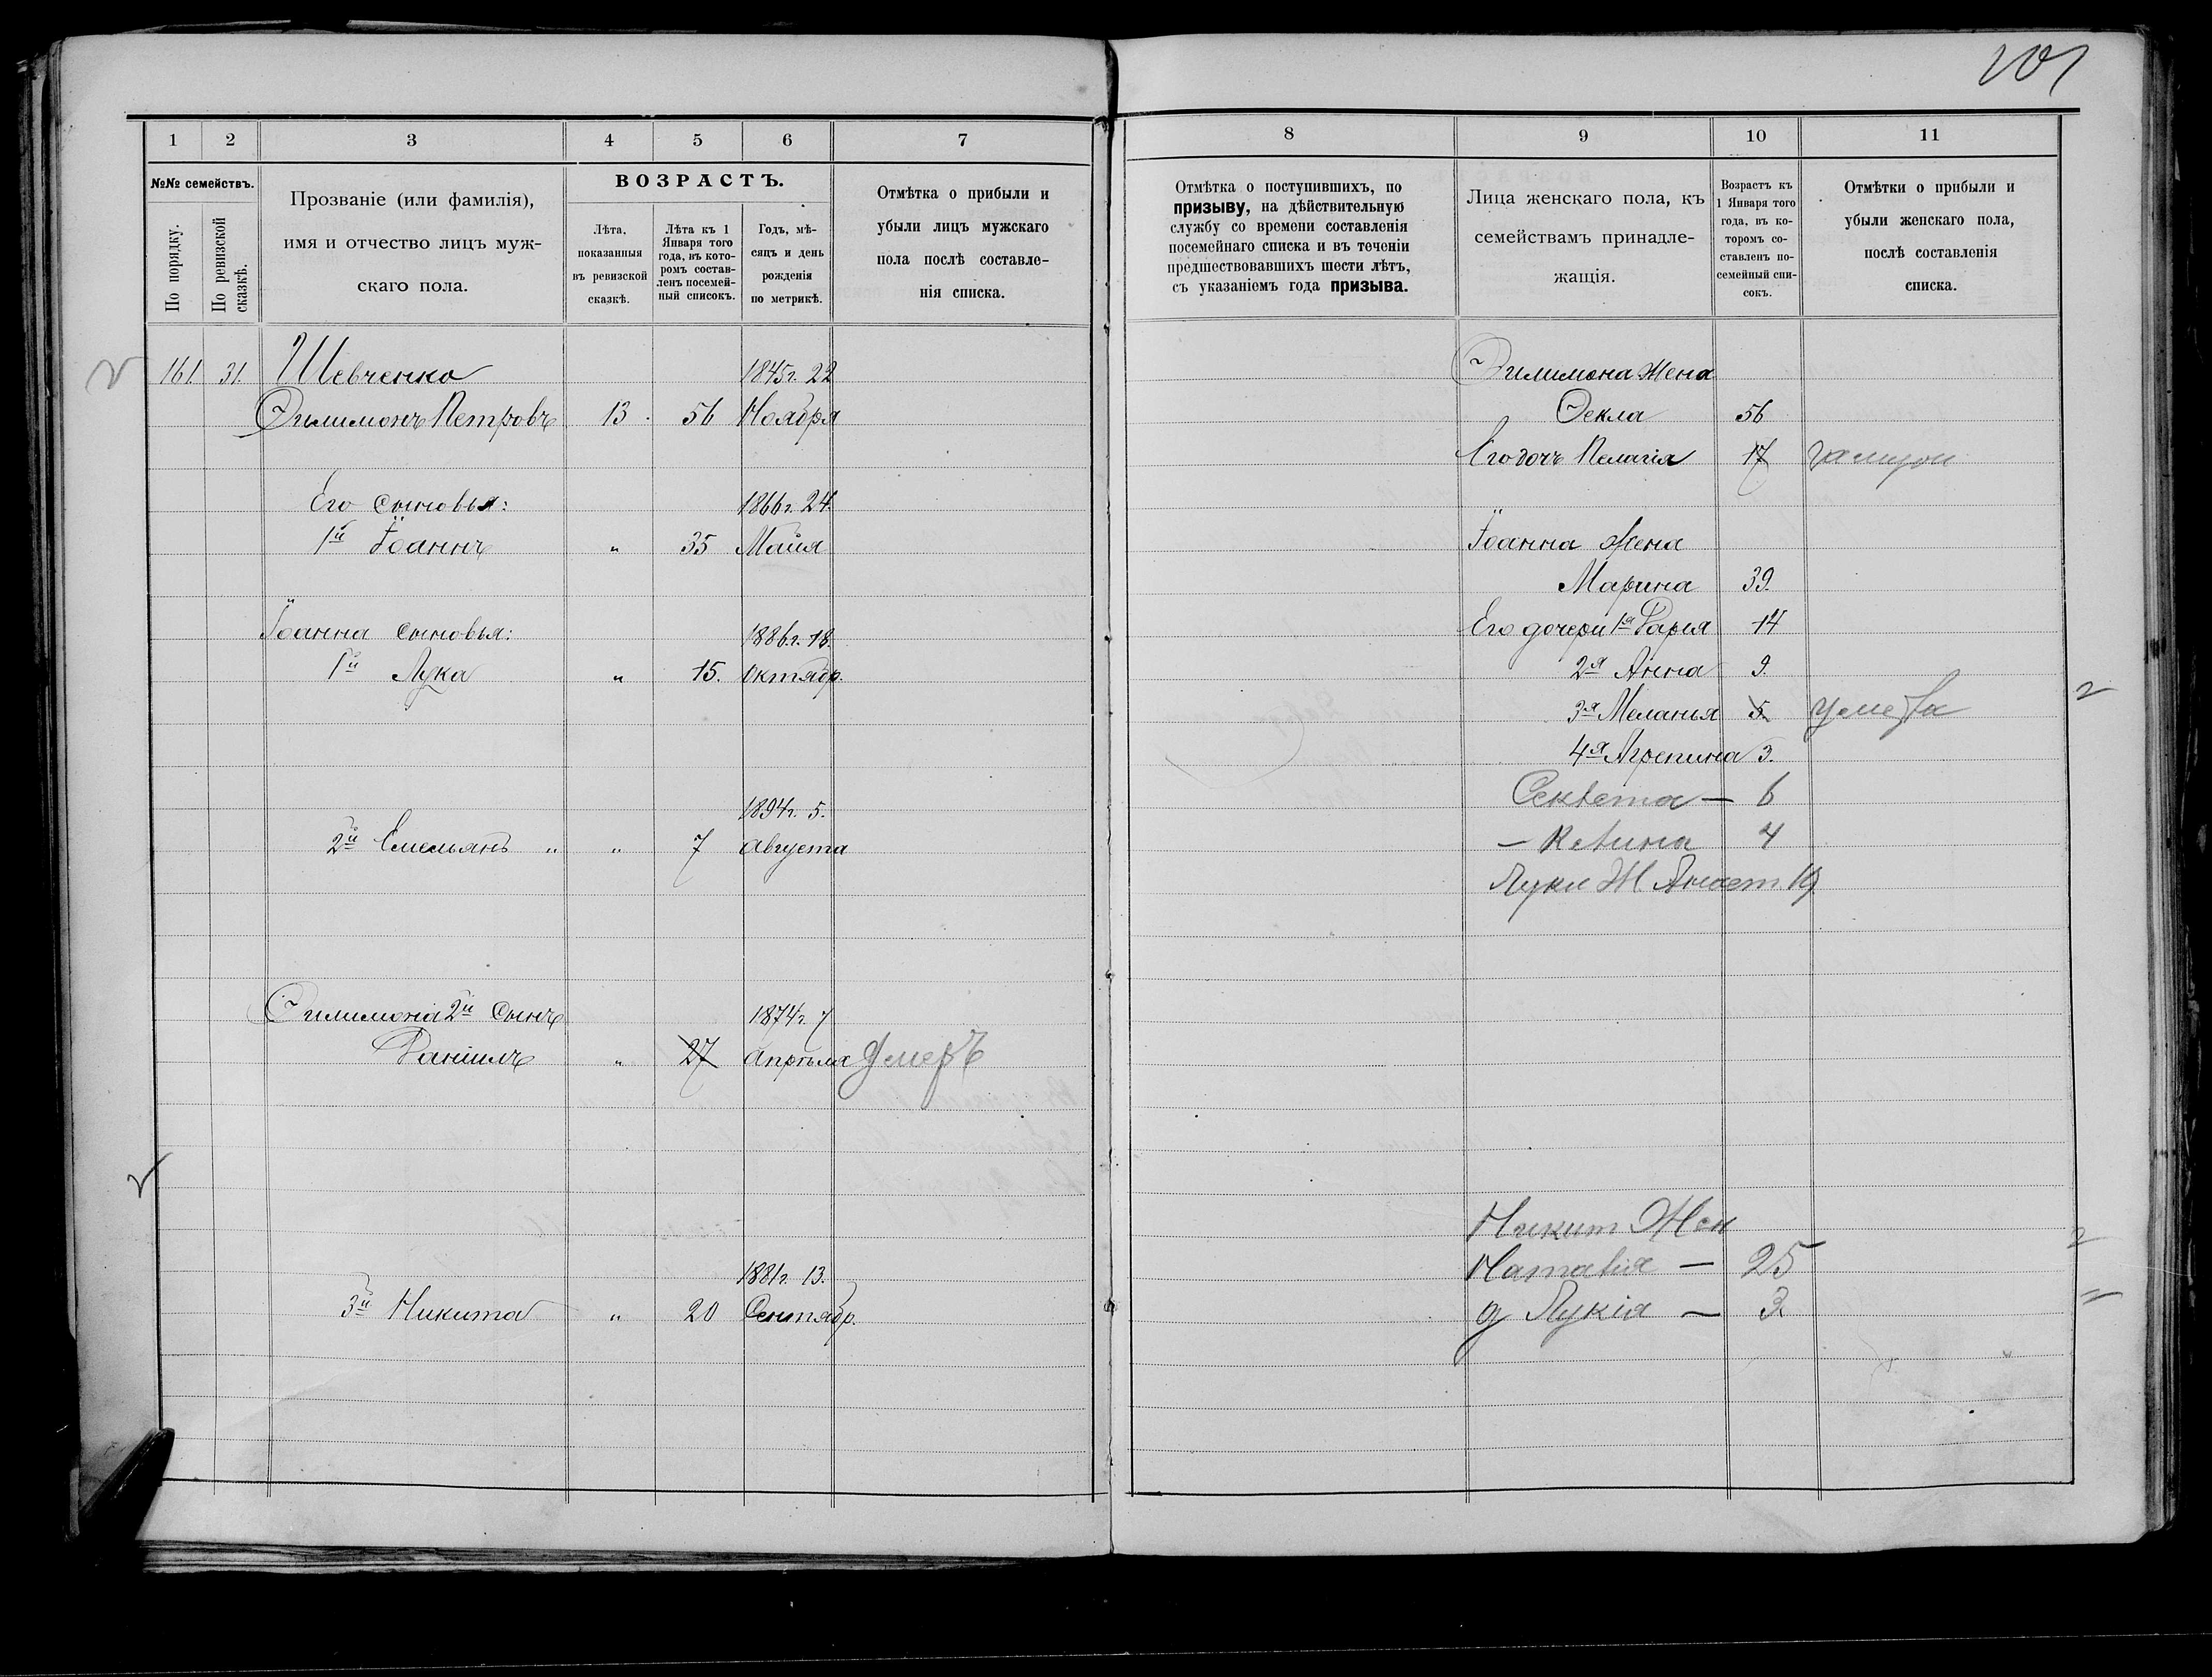 101
1 2 3 4 5 6 7
№№ семействъ.
По порядку.
По ревизской сказкѣ.
Прозваніе (или фамилія),
имя и отчество лицъ муж-
скаго пола.
ВОЗРАСТЪ.
Лѣта,
показанныя
въ ревизской
сказкѣ.
Лѣта къ 1
Января того
года, въ кото-
ромъ состав-
ленъ посемей-
ный списокъ.
Годъ, мѣ-
сяцъ и день
рожденія
по метрикѣ.
Отмѣтка о прибыли и
убыли лицъ мужскаго
пола послѣ составле-
нія списка.
161. 31. Шевченко 1845г. 22
Филимонъ Петровъ 13. 56 Ноября
Его сыновья: 1866г. 24.
1й Іоаннъ " 35 Майя
Іоанна сыновья: 1886.г. 18.
1й Лука " 15. октябр.
1894г. 5.
2й Емельянъ " " 7 августа
Филимона 2й сынъ 1874г. 7
Даніилъ " 27 апрѣля умеръ
1881г. 13.
3й Никита " 20 Сентябр.
8 9 10 11
Отмѣтка о поступившихъ, по
призыву, на дѣйствительную
службу со времени составленія
посемейнаго списка и въ теченіи
предшествовавшихъ шести лѣтъ,
съ указаніемъ года призыва.
Лица женскаго пола, къ
семействамъ принадле-
жащія.
Возрастъ къ
1 Января того
года, въ ко-
торомъ со-
ставленъ по-
семейный спи-
сокъ.
Отмѣтки о прибыли и
убыли женскаго пола,
послѣ составленія
списка.
Филимона жена
Фекла 56
Его дочь Пелагія 17
Іоанна жена
Марина 39.
Его дочери 1я Дарія 14
2я Анна 9.
3я Меланья 5. умерла
4я Агрепина 3.
6
4
Луки Ж. Анаст. 19
Никит Жен
Наталія — 25
д Лукія — 3